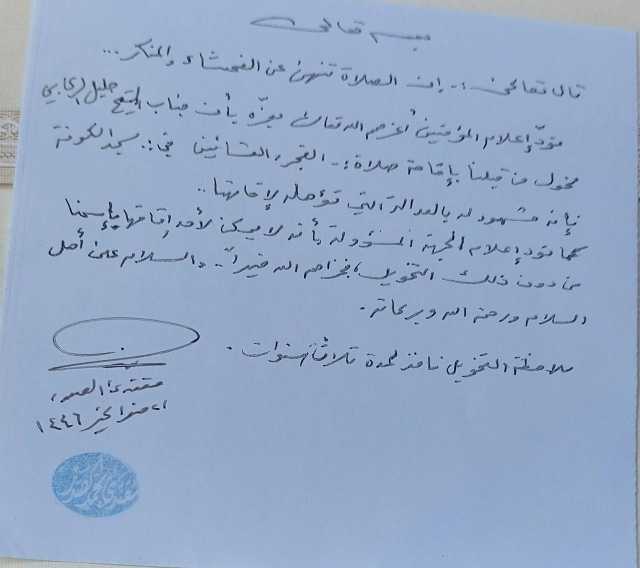 بسمه تعالى
قال تعالى :.. إن الصلاة تنهى عن الفحشاء والمنكر...
نودّ إعلام المؤمنين أعزهم الله تعالى بعزّه بأن جناب الشيخ جليل
مخول من قبلنا بإقامة صلاة :. الفجر والعشائين في :. مسجد الكوفة
فإنه مشهود له بالعدالة التي تؤهله لإقامتها..
كما نود إعلام الجهة المسؤولة بأنه لا يمكن لأحد إقامتها بإسمنا
من دون ذلك التخويل، فجزاهم الله خيراً.. والسلام على أهل
السلام ورحمة الله وبركاته.
ملاحظة التخويل نافذ لمدة ثلاث سنوات.
مقتدى الصدر
صفر الخير ١٤٤٦